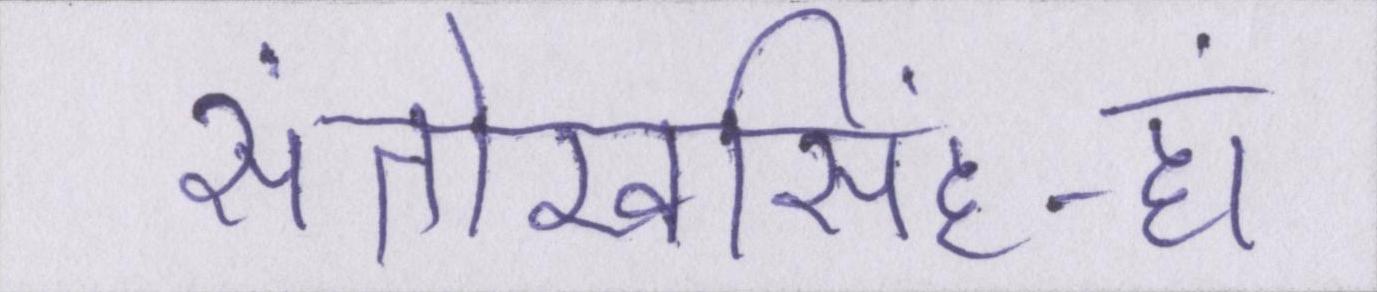 संतोखसिंह-हां